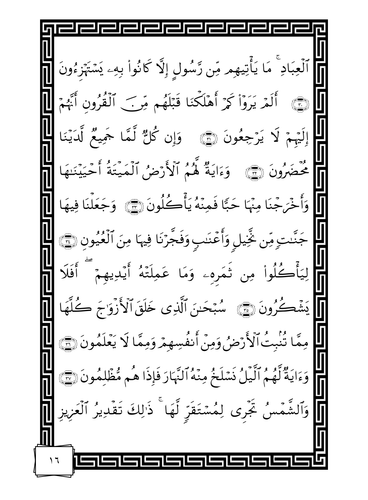 ٱلْعِبَادِ ۚ مَا يَأْتِيهِم مِّن رَّسُولٍ إِلَّا كَانُوا۟ بِهِۦ يَسْتَهْزِءُونَ
﴿٣٠﴾ أَلَمْ يَرَوْا۟ كَمْ أَهْلَكْنَا قَبْلَهُم مِّنَ ٱلْقُرُونِ أَنَّهُمْ
إِلَيْهِمْ لَا يَرْجِعُونَ ﴿٣١﴾ وَإِن كُلٌّ لَّمَّا جَمِيعٌ لَّدَيْنَا
مُحْضَرُونَ ﴿٣٢﴾ وَءَايَةٌ لَّهُمُ ٱلْأَرْضُ ٱلْمَيْتَةُ أَحْيَيْنَٰهَا
وَأَخْرَجْنَا مِنْهَا حَبًّا فَمِنْهُ يَأْكُلُونَ ﴿٣٣﴾ وَجَعَلْنَا فِيهَا
جَنَّٰتٍ مِّن نَّخِيلٍ وَأَعْنَٰبٍ وَفَجَّرْنَا فِيهَا مِنَ ٱلْعُيُونِ ﴿٣٤﴾
لِيَأْكُلُوا۟ مِن ثَمَرِهِۦ وَمَا عَمِلَتْهُ أَيْدِيهِمْ ۖ أَفَلَا
يَشْكُرُونَ ﴿٣٥﴾ سُبْحَٰنَ ٱلَّذِى خَلَقَ ٱلْأَزْوَٰجَ كُلَّهَا
مِمَّا تُنۢبِتُ ٱلْأَرْضُ وَمِنْ أَنفُسِهِمْ وَمِمَّا لَا يَعْلَمُونَ ﴿٣٦﴾
وَءَايَةٌ لَّهُمُ ٱلَّيْلُ نَسْلَخُ مِنْهُ ٱلنَّهَارَ فَإِذَا هُم مُّظْلِمُونَ ﴿٣٧﴾
وَٱلشَّمْسُ تَجْرِى لِمُسْتَقَرٍّ لَّهَا ۚ ذَٰلِكَ تَقْدِيرُ ٱلْعَزِيزِ
١٦